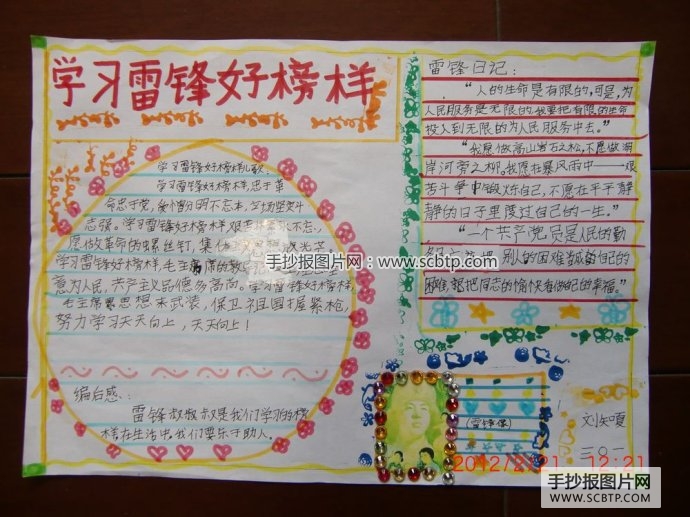 学习雷锋好榜样
学习雷锋好榜样儿歌：
学习雷锋好榜样，忠于革
命忠于党，爱憎分明不忘本，立场坚定斗
志强。学习雷锋好榜样，艰苦朴素永不忘，
愿做革命的螺丝钉，集体
学习雷锋好榜样，毛主席的教
意为人民，共产主义品德多高尚。学习雷锋好榜样，
毛主席思想来武装，保卫祖国握紧枪，
努力学习天天向上，天天向上！
编后感：
雷锋叔叔是我们学习的榜
样在生活中，我们要乐于助人。
雷锋日记：
“人的生命是有限的，可是，为
人民服务是无限的，我要把有限的生命
投入到无限的为人民服务中去。”
“我愿做高山岩石之松，不愿做湖
岸河旁之柳。我愿在暴风雨中——艰
苦斗争中锻炼自己，不愿在平平静
静的日子里度过自己的一生。”
“一个共产党员是人民的勤
别人的困难当成自己的
困难，把同志的愉快看做自己的幸福。”
手抄报图片网：www.scbtp.com
(雷锋像)
刘
三〇一
2012/2/21 12:21
手抄报图片网
WWW.SCBTP.COM